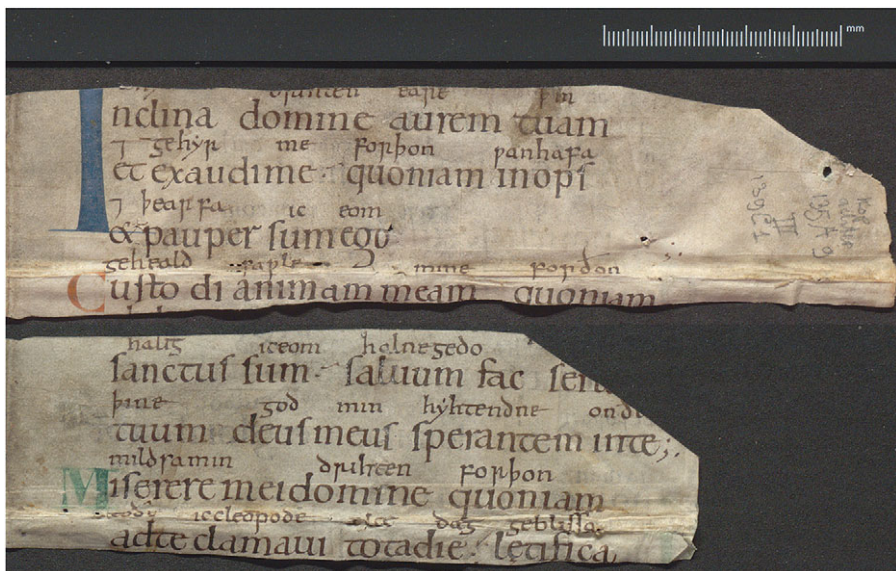 mm
eare þin
Inclina domine aurem tuam
⁊ gehyr me forþon þanhafa
et exaudime · quoniam inopſ
⁊ þearfa ic eom
& pauper ſum ego
geheald saple mine forðon
Cuſto di animam meam quoniam
halig iceom halne gedo
ſanctuſ ſum · ſaluum fac
þine god min hyhtendne
tuum deuſ meuſ ſperantem inte;
mildsa min drihten forþon
Miſerere mei domine quoniam
iccleopode dæg gebliſſa
adte clamaui totadie · letifica